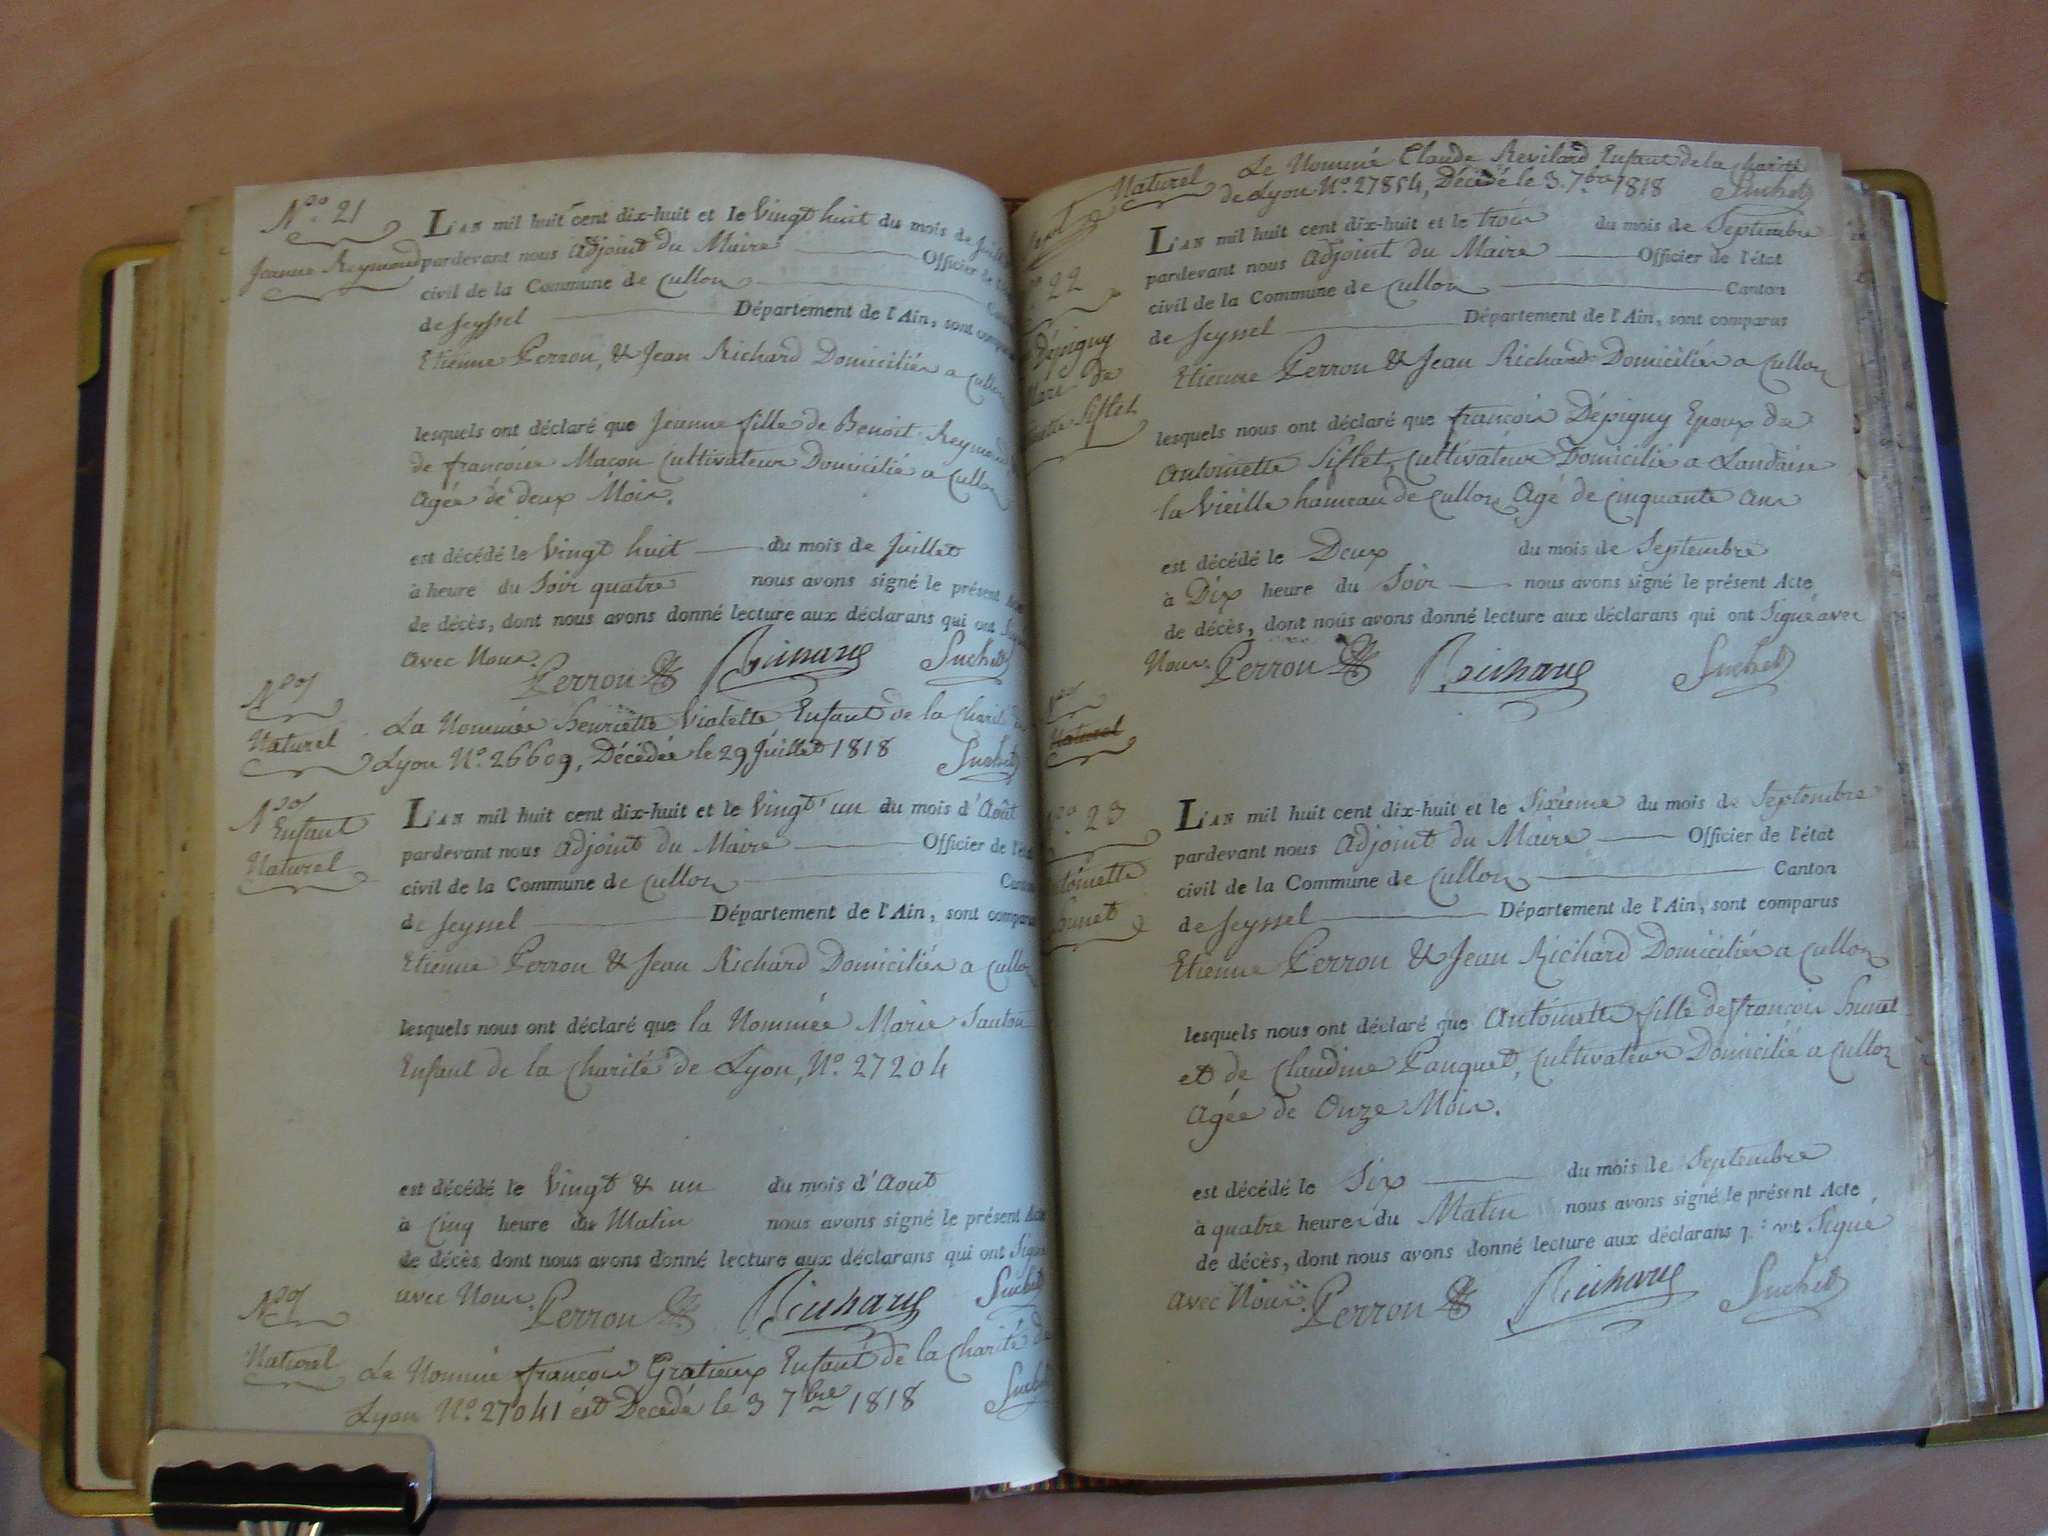 Nº 21
Jeanne Reymond
L'AN mil huit cent dix-huit et le Vingt huit du mois de Juillet
pardevant nous Adjoint du Maire Officier de
civil de la Commune de Cullon
de Seyssel Département de l'Ain, sont comparus
Etienne Perron, & Jean Richard Domiciliés a Cullon
lesquels ont déclaré que Jeanne fille de Benoit Reymond
de françoise Maçon Cultivateur Domicilié a Cullon
Agée de deux Mois.
est décédé le Vingt huit du mois de Juillet
à heure du Soir quatre nous avons signé le présent Acte
de décès, dont nous avons donné lecture aux déclarans qui ont Signé
avec Nous. Perron Richard Suchet
Nº
Naturel
La Nommée henriette Violette Enfant de la Charité de
Lyon Nº 26609, Décédée le 29 Juillet 1818 Suchet
Nº
Enfant
Naturel
L'AN mil huit cent dix-huit et le Vingt un du mois d'Août
pardevant nous Adjoint du Maire Officier de l'état
civil de la Commune de Cullon Canton
de Seyssel Département de l'Ain, sont comparus
Etienne Perron & Jean Richard Domiciliés a Cullon
lesquels nous ont déclaré que la Nommée Marie Santon
Enfant de la Charité de Lyon, Nº 27204
est décédé le Vingt & un du mois d'Aout
à Cinq heure du Matin nous avons signé le présent Acte
de décès dont nous avons donné lecture aux déclarans qui ont Signé
avec Nous. Perron Richard Suchet
Nº
Naturel
Le Nommé françois Gratieux Enfant de la Charité de
Lyon Nº 27041 est Decedé le 3 7bre 1818 Suchet
Naturel Le Nommé Claude Revilard Enfant de la Charité
de Lyon Nº 27854, Décédé le 3 7bre 1818 Suchet
22
Dépigny
de
Siflet
L'AN mil huit cent dix-huit et le trois du mois de Septembre
pardevant nous Adjoint du Maire Officier de l'état
civil de la Commune de Cullon Canton
de Seyssel Département de l'Ain, sont comparus
Etienne Perron & Jean Richard Domiciliés a Cullon
lesquels nous ont déclaré que françois Dépigny Epoux de
Antoinette Siflet, Cultivateur Domicilié a Landaise
la Vieille hameau de Cullon, Agé de Cinquante Ans
est décédé le Deux du mois de Septembre
à Dix heure du Soir nous avons signé le présent Acte,
de décès, dont nous avons donné lecture aux déclarans qui ont Signé avec
Nous. Perron Richard Suchet
Nº
Naturel
Nº 23
L'AN mil huit cent dix-huit et le Sixieme du mois de Septembre
pardevant nous Adjoint du Maire Officier de l'état
civil de la Commune de Cullon Canton
de Seyssel Département de l'Ain, sont comparus
Etienne Perron & Jean Richard Domiciliés a Cullon
lesquels nous ont déclaré que Antoinette fille de françois hunet
et de Claudine Panquet, Cultivateur Domicilié a Cullon
Agée de Onze Mois.
est décédé le Six du mois de Septembre
à quatre heures du Matin nous avons signé le présent Acte,
de décès, dont nous avons donné lecture aux déclarans Signé
avec Nous. Perron Richard Suchet